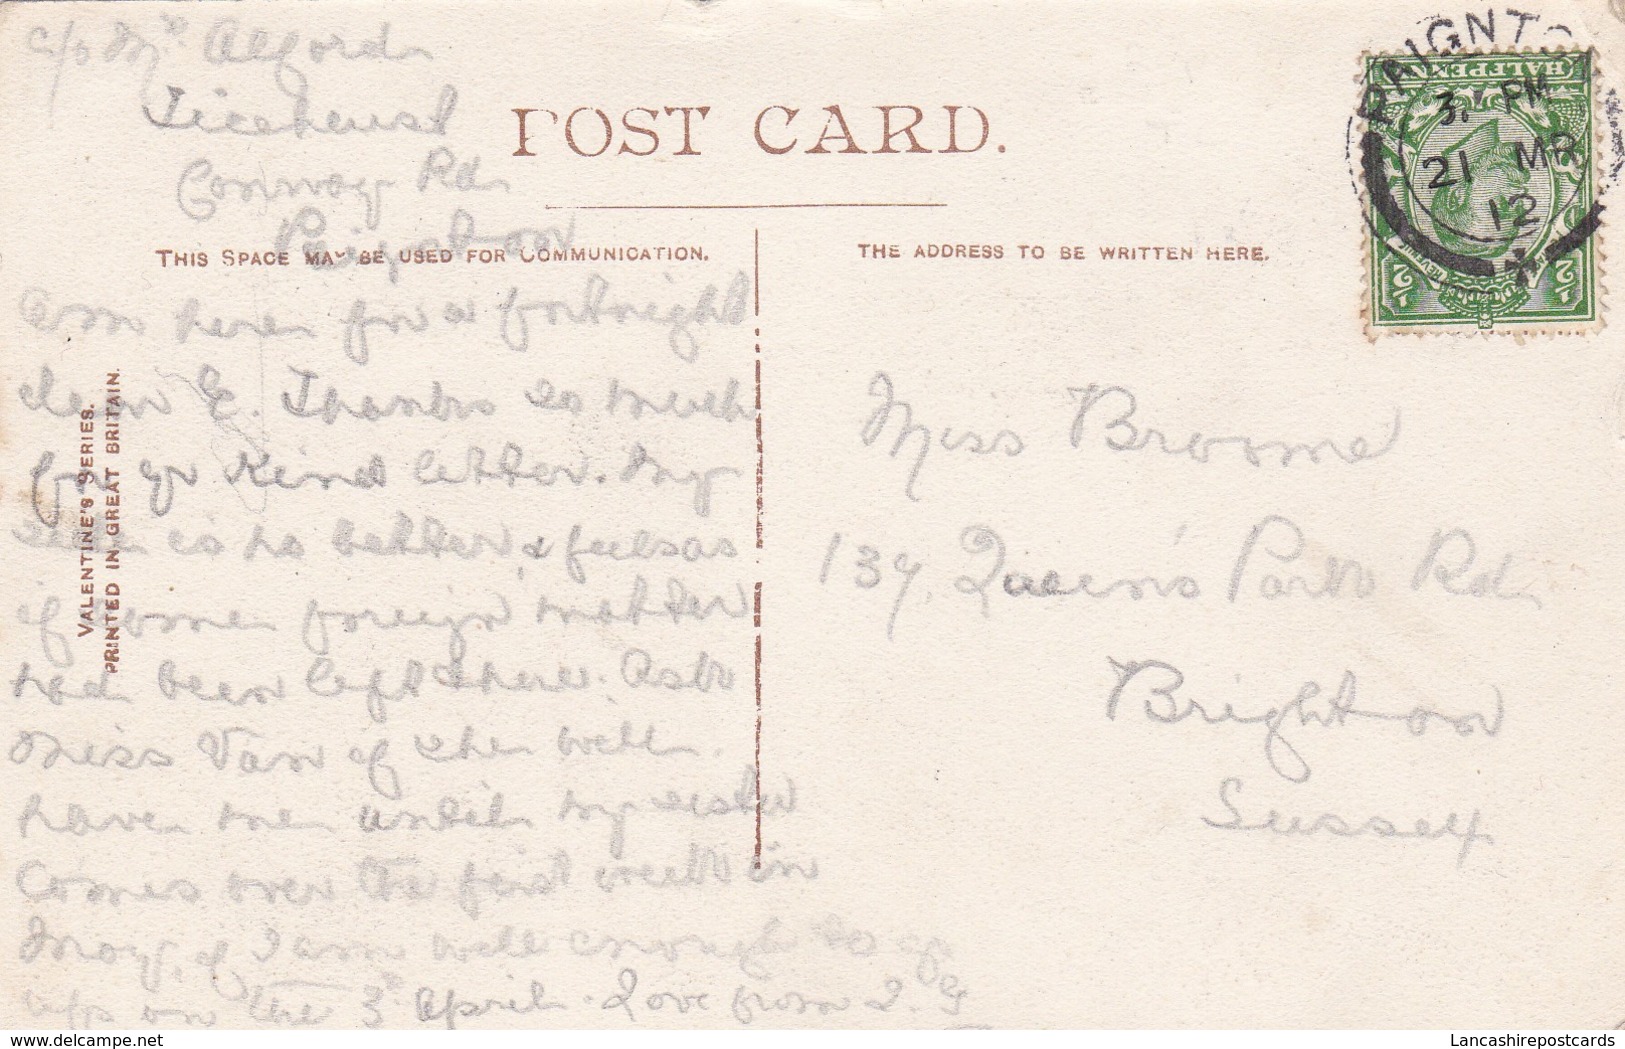 c/o Mrs Alford
Ticehurst
Conway Rd
Paignton
POST CARD.
THIS SPACE MAY BE USED FOR COMMUNICATION.
THE ADDRESS TO BE WRITTEN HERE.
am here for a fortnight
dear E. Thanks so much
for yr kind letter. My
is no better & feels as
if some foreign matter
had been left there. Ask
Miss Van if she will
have me until my sister
comes over the first week in
May, if I am well enough to
up on the 3rd April. Love from
VALENTINE'S SERIES.
PRINTED IN GREAT BRITAIN.
Miss Broome
137, Queen's Park Rd
Brighton
Sussex
PAIGNTO
3. PM
21 MR
12
HALFPENNY
1/2
1/2
Lancashirepostcards
www.delcampe.net